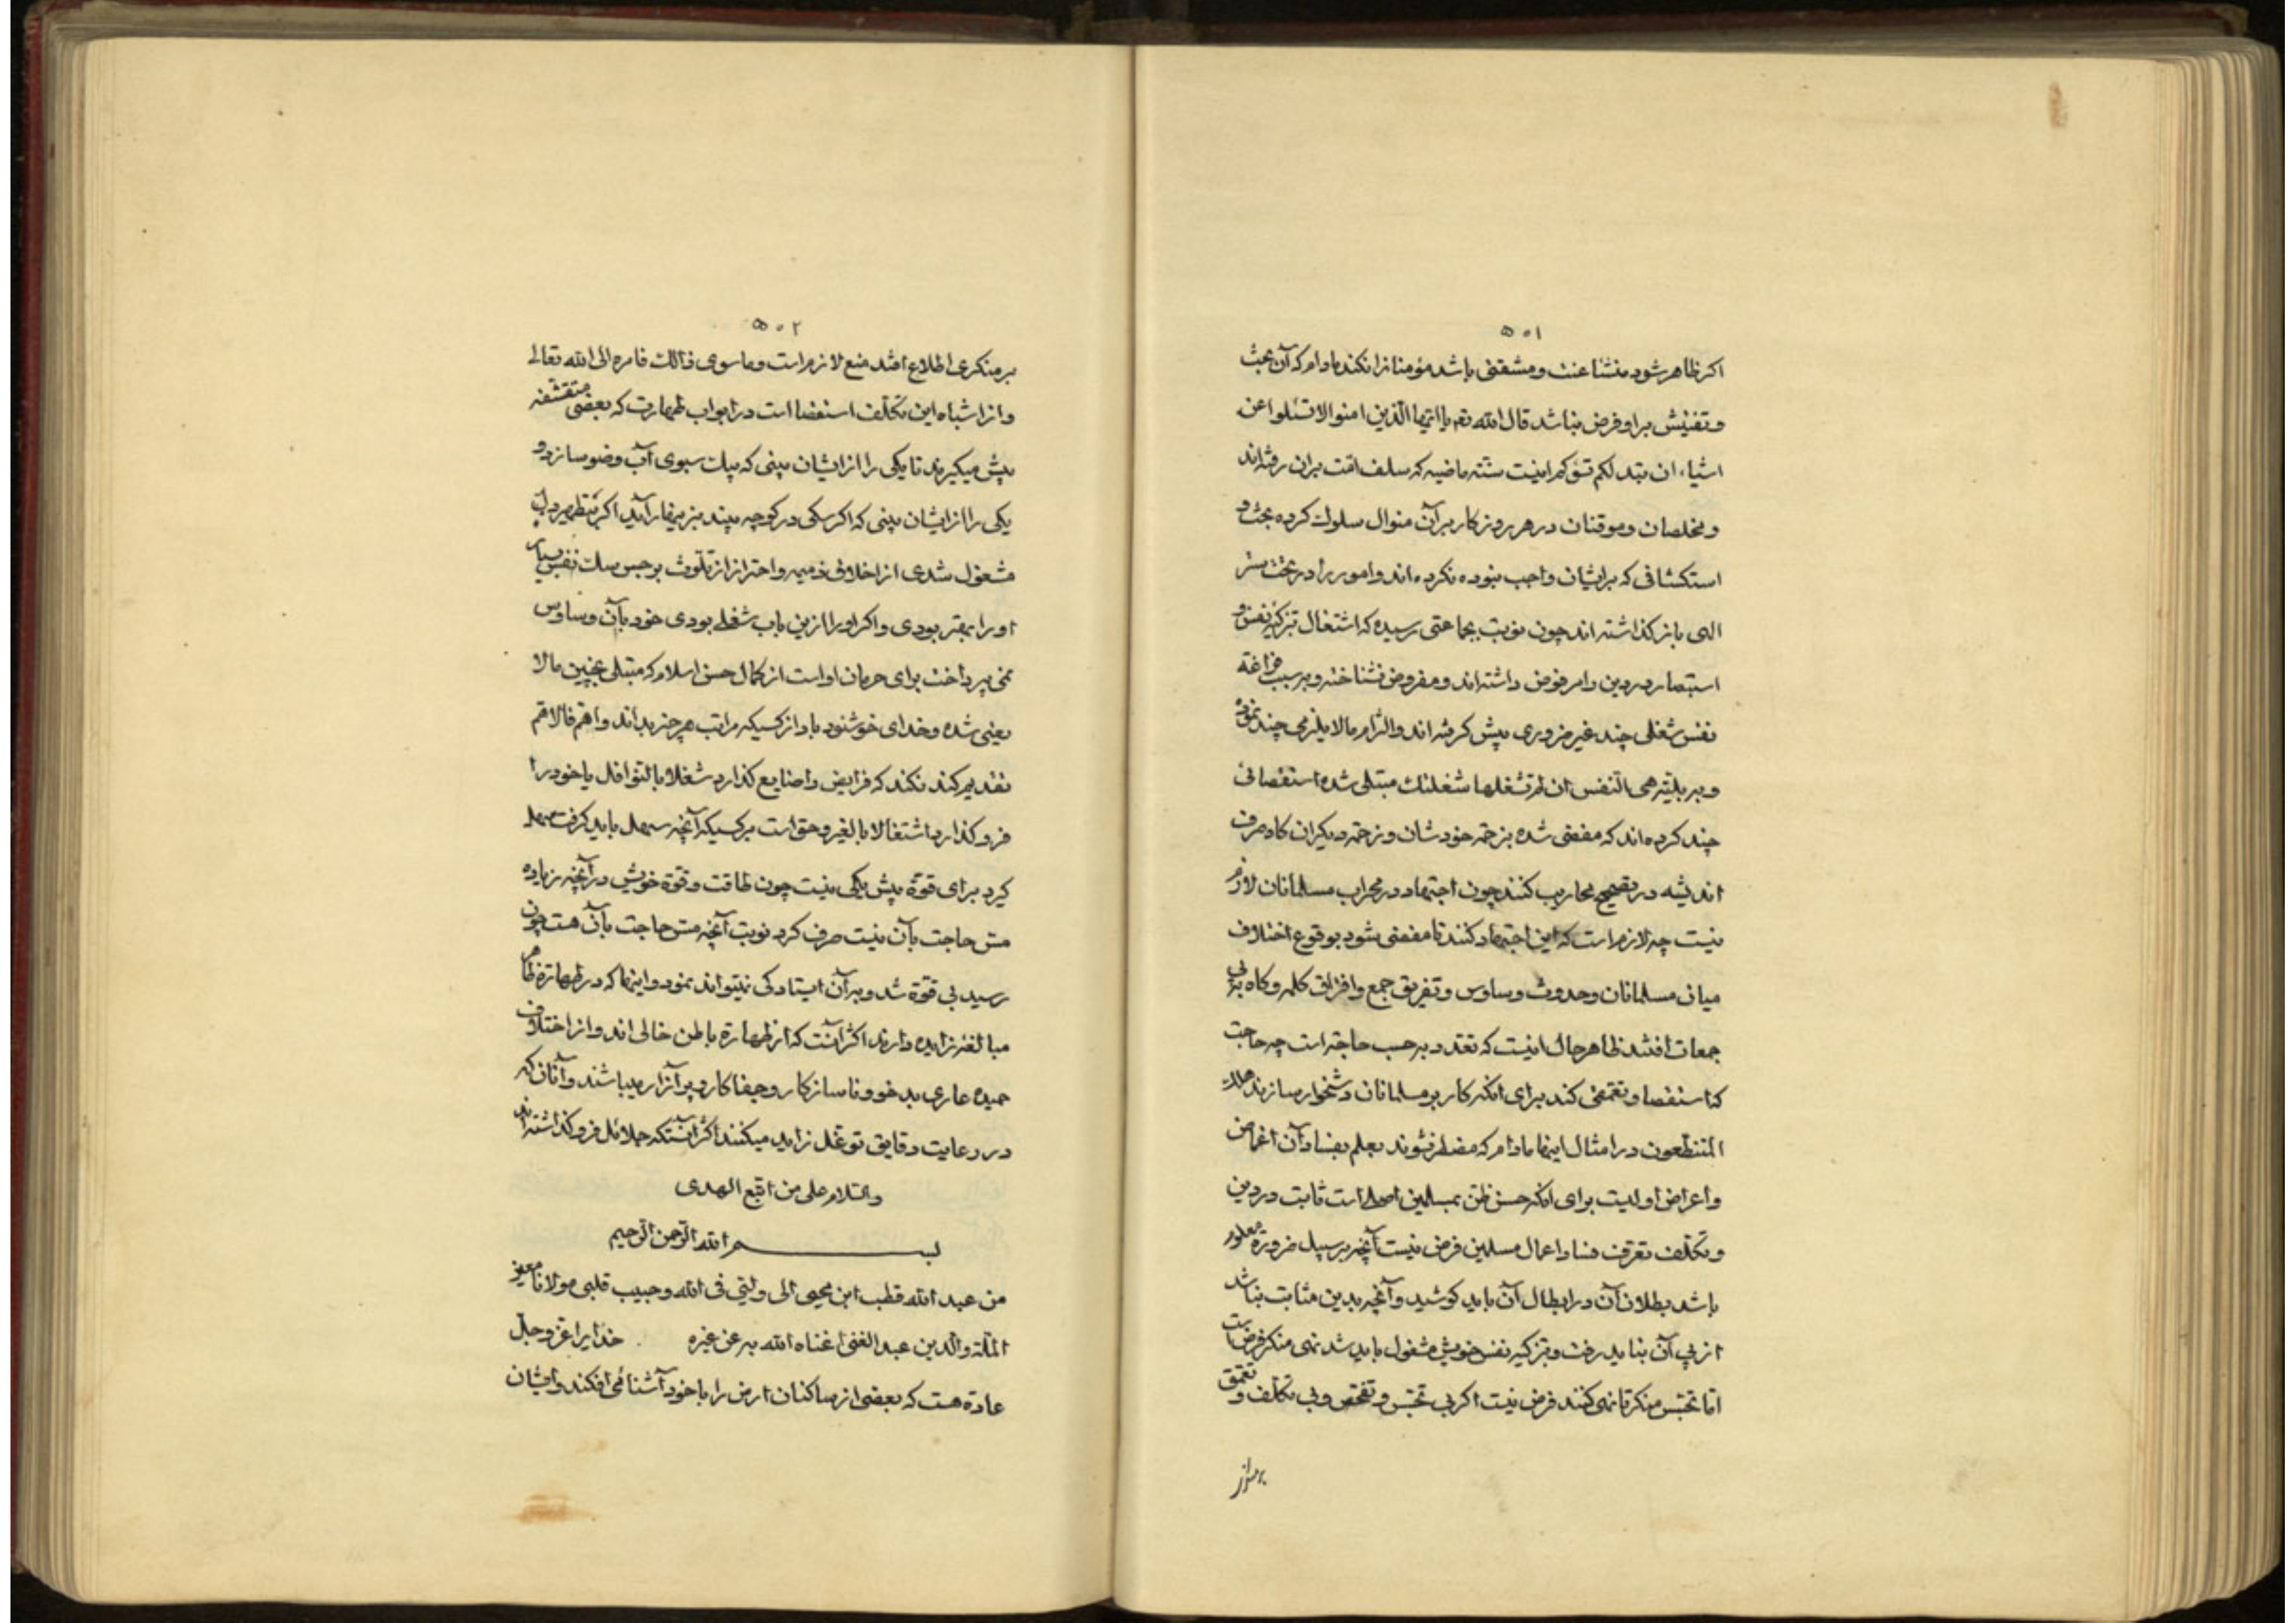 ۵۰۱
اکر ظاهر شود منشا عنت و مشقتی باشد مؤمنانرا نکند مادام که آن بحث
و تفتیش براو فرض نباشد قال الله تعم یا ایها الذین امنوا لا تسئلوا عن
اشیاء ان تبد لکم تسؤکم اینست سنته ماضیه که سلف امت بران رفته‌اند
و مخلصان و موقنان در هر روزکار بر آن منوال سلوک کرده بحث و
استکشافی که برایشان واجب نبوده نکرده‌اند و امور را در تحت ستر
الهی باز کذاشته‌اند چون نوبت بجماعتی رسیده که اشتغال تزکیه نفس و
استبصار در دین را مرفوض داشته‌اند و مفروض نشناخته و بر سبب فراغة
نفس شغلی چند غیر ضروری پیش کرفته‌اند و التزام مالا یلزمی چند نموده
و ببر بلیته هی النفس ان لم تشغلها شغلتک مبتلی شده استقصائی
چند کرده‌اند که مفضی شده بزحمة خودشان و زحمة دیکران کاه صرف
اندیشه در تصحیح محاریب کنند چون اجتهاد در محراب مسلمانان لازم
نیست چه لازم است که این اجتهاد کنند تا مفضی شود بوقوع اختلاف
میان مسلمانان و حدوث وساوس و تفریق جمع و افراق کلمه و کاه در پی
جمعات افتند ظاهر حال اینست که تعدد بر حسب حاجة است چه حاجت
که استقصا و تعمقی کند برای انکه کار بر مسلمانان دشخوار سازند هلک
المتنطعون در امثال اینها مادام که مضطر نشوند بعلم بفساد آن اغماض
و اعراض اولیست برای انکه حسن ظن بمسلمین اصلی است ثابت در دین
و تکلف تعرف فساد اعمال مسلمین فرض نیست آنچه بر سبیل ضرورة معلوم
باشد بطلان آن در ابطال آن باید کوشید و آنچه بدین مثابت نباشد
از پی آن نباید رفت و بتزکیه نفس خویش مشغول باید شد نهی منکر فرض است
اما تجسس منکر تا نهی کنند فرض نیست اکر بی تجسس و تفحص و بی تکلف و تعمق
۵۰۲
بر منکری اطلاع افتد منع لازم است و ماسوی ذالک فامره الی الله تعالی
و از اشباه این تکلف استقصا است در ابواب طهارت که بعضی متقشفه
پیش میکیرند تا یکی را از ایشان بینی که بیک سبوی آب وضو سازد و
یکی را از ایشان بینی که اکر سکی در کوچه بیند بزینهار آید اکر بتطهیر دل
مشغول شدی از اخلاق ذمیمه و احتراز از تلوث برجس سک نفس بسیار
او را بهتر بودی و اکر او را ازین باب شغلی بودی خود بآن وساوس
نمی پرداخت برای حرمان او است از کمال حسن اسلام که مبتلی بچنین مالا
یعنی شده و خدای خوشنود باد از کسیکه مراتب هر چیز بداند و اهم فالاهم
تقدیم کند نکند که فرایض را ضایع کذارد شغلا بالنوافل یا خود را
فرو کذارد اشتغالا بالغیر و حق است بر کسیکه آنچه سهل باید کرفت سهل
کیرد برای قوة پیش یکی نیست چون طاقت و قوة خویش در آنچه زیاده
مش حاجت بآن نیست صرف کرد نوبت آنچه مش حاجت بآن هست چون
رسید بی قوة شد و بر آن ایستادکی نیتواند نمود و اینها که در طهارة ظاهر
مبالغه زایده دارند اکثر آنست که از طهارة باطن خالی اند و از اخلاق
حمیده عاری بد خو و ناسازکار و جفاکار و پر آزار میباشند و آنان که
در رعایت دقایق توغل زاید میکنند اکثر آنستکه جلائل فرو کذاشته‌اند
والسلام علی من اتبع الهدی
بسم الله الرحمن الرحیم
من عبد الله قطب ابن محیی الی ولیی فی الله و حبیب قلبی مولانا معز
الملة والدین عبد الغنی اغناه الله به عن غیره خدایرا عز و جل
عادة هست که بعضی از ساکنان ارض را با خود آشنائی افکند و ایشان